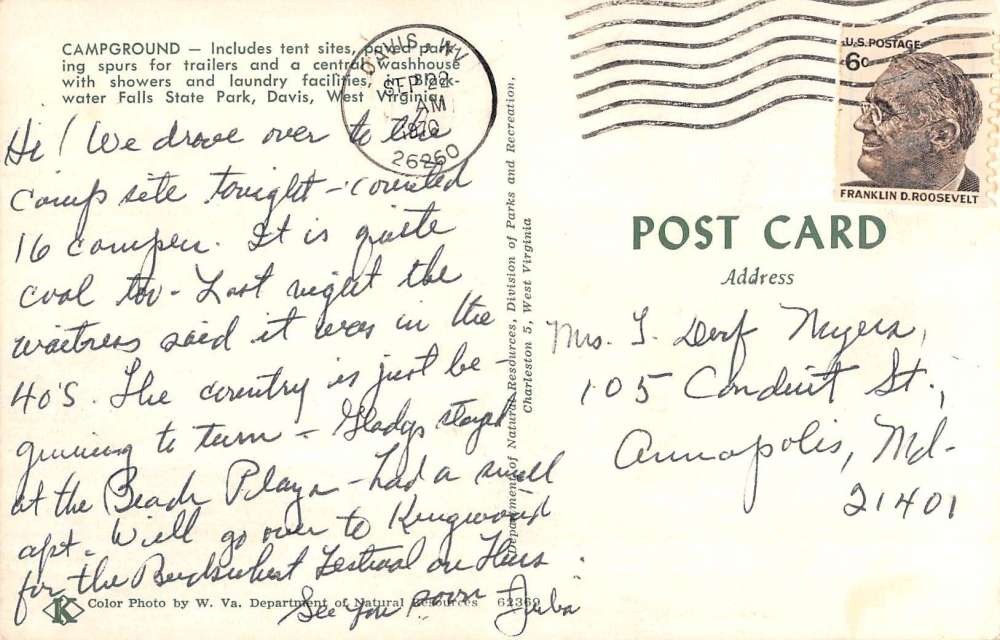 CAMPGROUND — Includes tent sites, paved park-
ing spurs for trailers and a central washhouse
with showers and laundry facilities, in Black-
water Falls State Park, Davis, West Virginia.
Hi! We drove over to the
camp site tonight - counted
16 campers. It is quite
cool too - Last night the
waitress said it was in the
40'S. The country is just be-
ginning to turn - Gladys stayed
at the Beach Plaza - had a small
apt. Will go over to Kingwood
for the Buckwheat Festival on Thurs.
See you soon
Color Photo by W. Va. Department of Natural Resources 62369
K
Department of Natural Resources, Division of Parks and Recreation,
Charleston 5, West Virginia
DAVIS, WV
SEP 22
AM
1970
26260
U.S. POSTAGE
6c
FRANKLIN D. ROOSEVELT
POST CARD
Address
Mrs. Myers,
105 Conduit St.,
Annapolis, Md-
21401